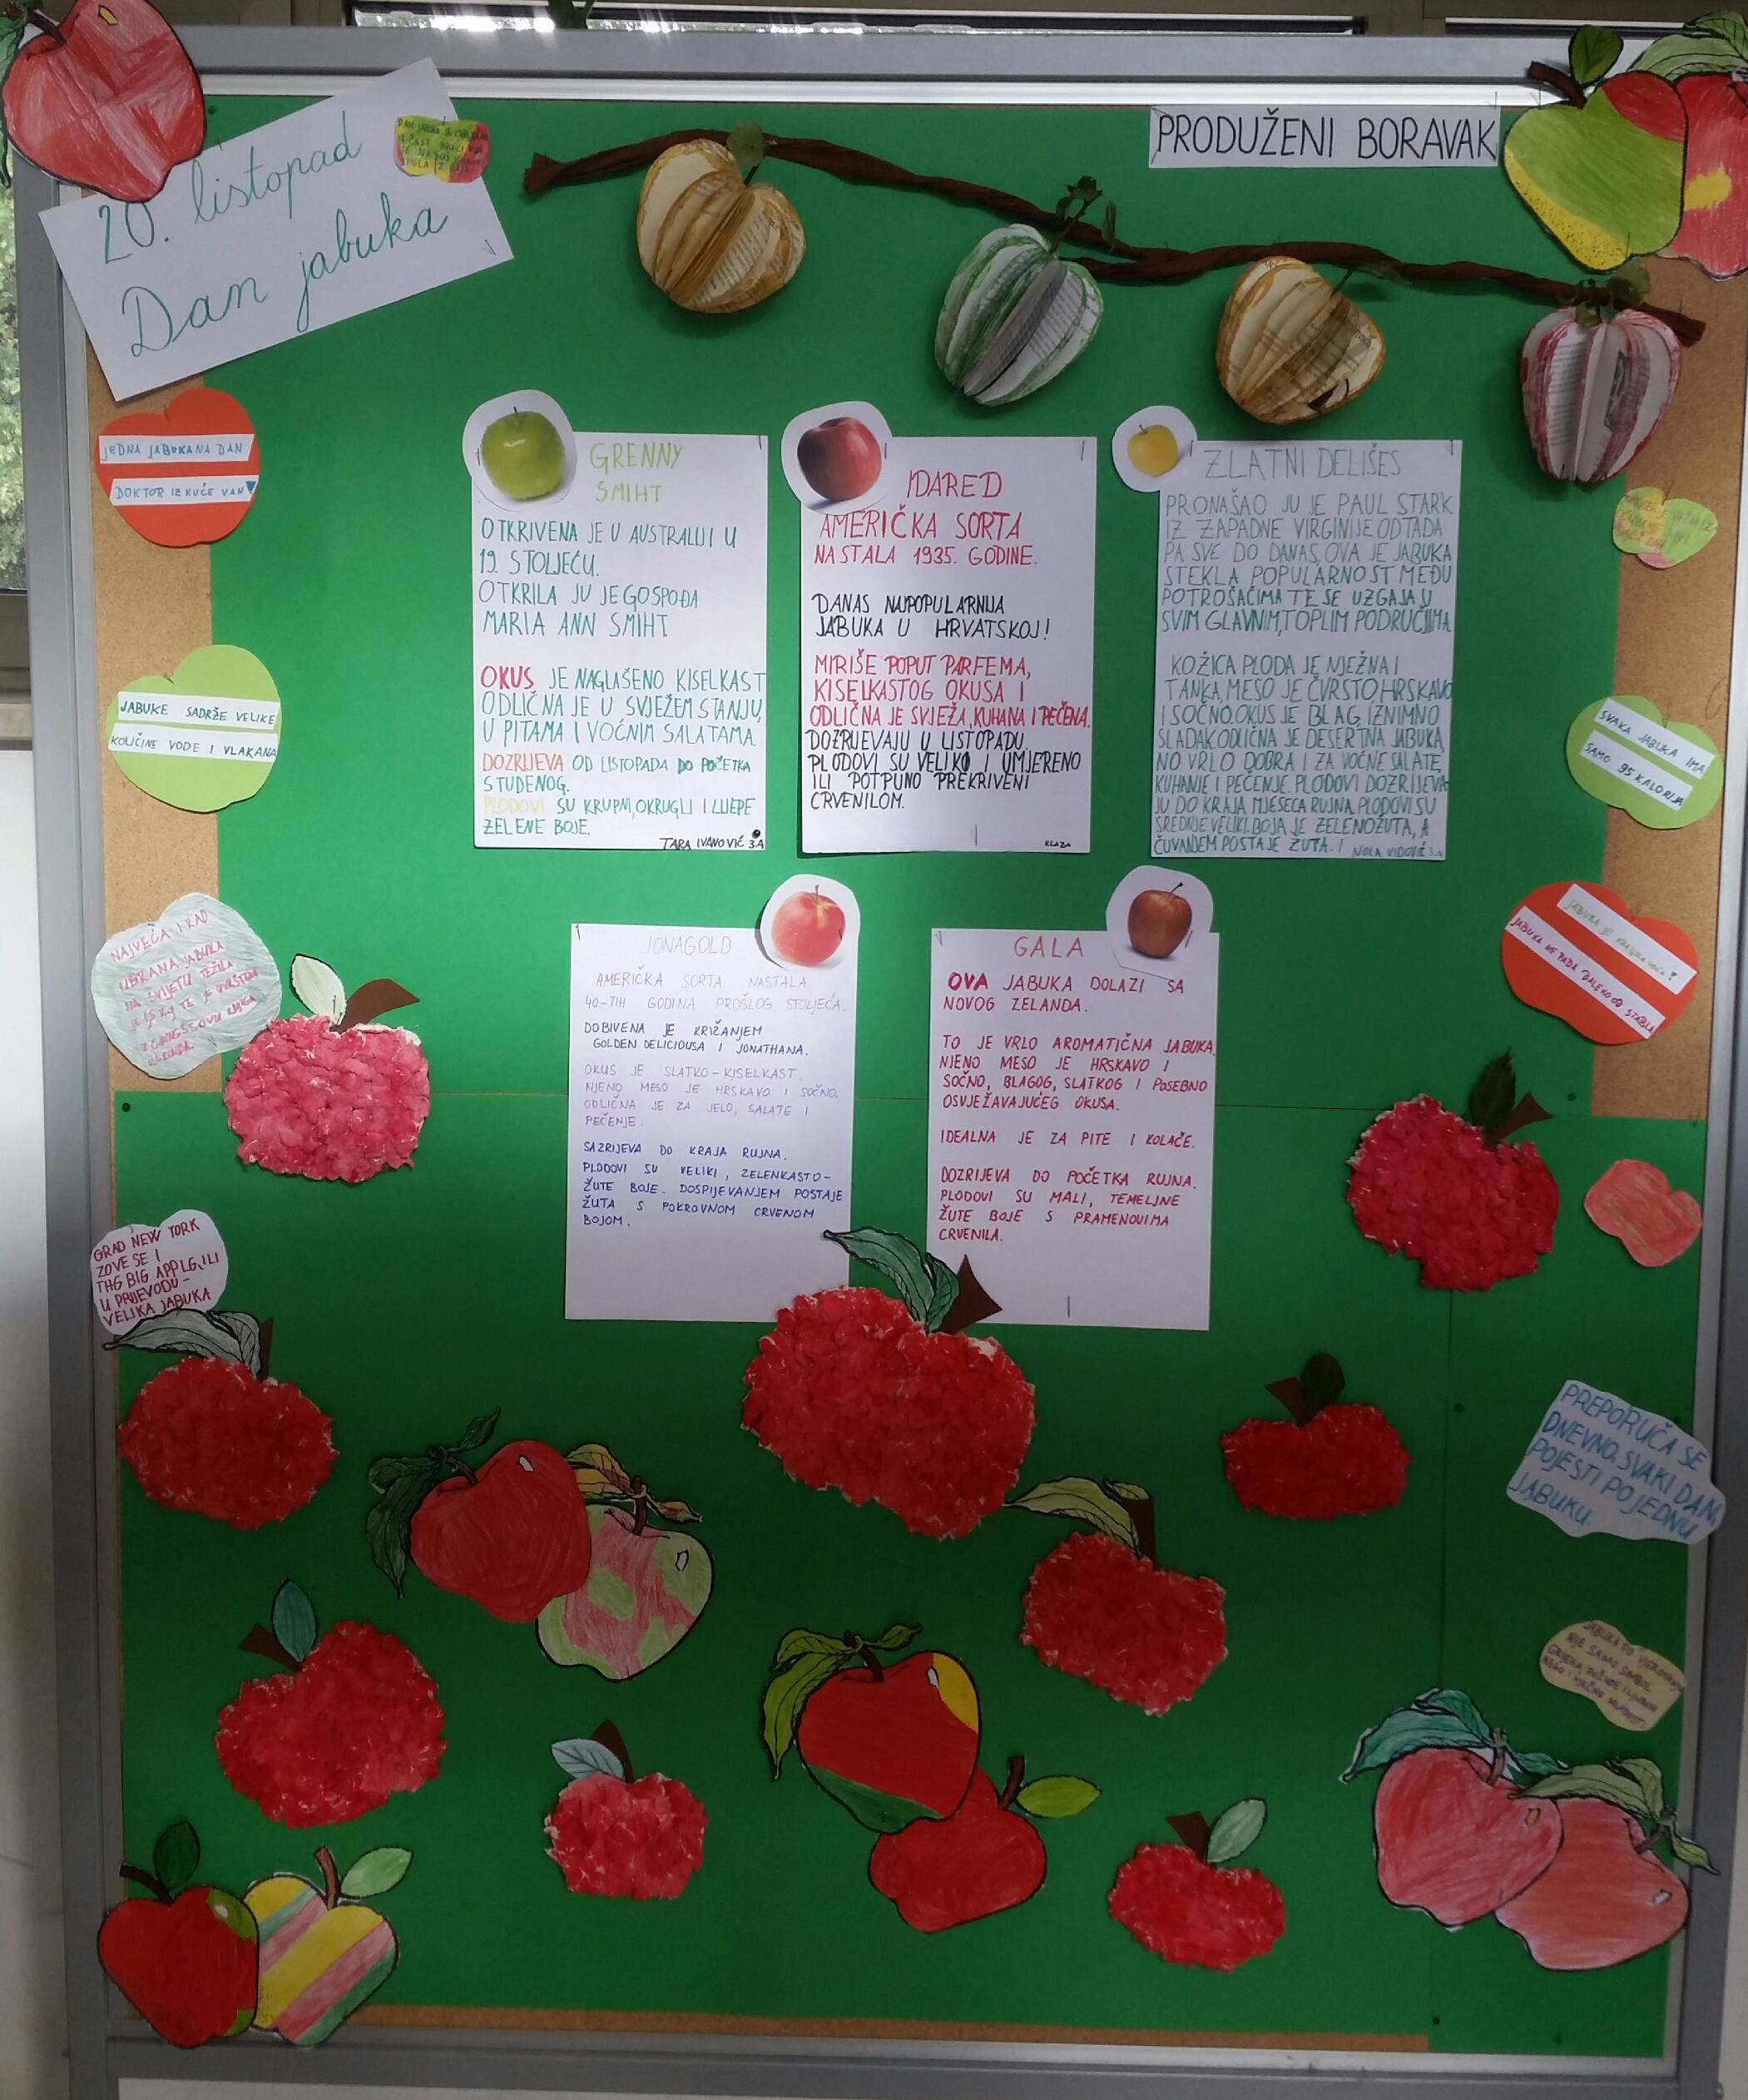 20. listopad
Dan jabuka
PRODUŽENI BORAVAK
JEDNA JABUKA NA DAN
DOKTOR IZ KUĆE VAN
JABUKE SADRŽE VELIKE
KOLIČINE VODE I VLAKANA
NAJVEĆA IKAD
UBRANA JABUKA
NA SVIJETU TEŽILA
GRAD NEW YORK
ZOVE SE I
THG BIG APPLG, ILI
U PRIJEVODU -
VELIKA JABUKA
GRENNY
SMIHT
OTKRIVENA JE U AUSTRALIJI U
19. STOLJEĆU.
OTKRILA JU JE GOSPOĐA
MARIA ANN SMIHT
OKUS JE NAGLAŠENO KISELKAST
ODLIČNA JE U SVJEŽEM STANJU,
U PITAMA I VOĆNIM SALATAMA
DOZRIJEVA OD LISTOPADA DO POČETKA
STUDENOG.
PLODOVI SU KRUPNI, OKRUGLI I LIJEPE
ZELENE BOJE.
TARA IVANOVIĆ 3.A
IDARED
AMERIČKA SORTA
NASTALA 1935. GODINE.
DANAS NAJPOPULARNIJA
JABUKA U HRVATSKOJ!
MIRIŠE POPUT PARFEMA,
KISELKASTOG OKUSA I
ODLIČNA JE SVJEŽA, KUHANA I PEČENA.
DOZRIJEVAJU U LISTOPADU.
PLODOVI SU VELIKI I UMJERENO
ILI POTPUNO PREKRIVENI
CRVENILOM.
KLARA
ZLATNI DELIŠES
PRONAŠAO JU JE PAUL STARK
IZ ZAPADNE VIRGINIJE ODTADA
PA SVE DO DANAS, OVA JE JABUKA
STEKLA POPULARNOST MEĐU
POTROŠAČIMA TE SE UZGAJA U
SVIM GLAVNIM, TOPLIM PODRUČJIMA
KOŽICA PLODA JE NJEŽNA I
TANKA, MESO JE ČVRSTO, HRSKAVO
I SOČNO. OKUS JE BLAG, IZNIMNO
SLADAK. ODLIČNA JE DESERTNA JABUKA,
NO VRLO DOBRA I ZA VOĆNE SALATE,
KUHANJE I PEČENJE. PLODOVI DOZRIJEVA
JU DO KRAJA MJESECA RUJNA. PLODOVI SU
SREDNJE VELIKI. BOJA JE ZELENOŽUTA, A
ČUVANJEM POSTAJE ŽUTA.
NOLA VIDOVIĆ 3.A
JONAGOLD
AMERIČKA SORTA NASTALA
40-TIH GODINA PROŠLOG STOLJEĆA.
DOBIVENA JE KRIŽANJEM
GOLDEN DELICIOUSA I JONATHANA.
OKUS JE SLATKO-KISELKAST.
NJENO MESO JE HRSKAVO I SOČNO.
ODLIČNA JE ZA JELO, SALATE I
PEČENJE.
SAZRIJEVA DO KRAJA RUJNA.
PLODOVI SU VELIKI, ZELENKASTO-
ŽUTE BOJE. DOSPIJEVANJEM POSTAJE
ŽUTA S POKROVNOM CRVENOM
BOJOM.
GALA
OVA JABUKA DOLAZI SA
NOVOG ZELANDA.
TO JE VRLO AROMATIČNA JABUKA.
NJENO MESO JE HRSKAVO I
SOČNO, BLAGOG, SLATKOG I POSEBNO
OSVJEŽAVAJUĆEG OKUSA.
IDEALNA JE ZA PITE I KOLAČE.
DOZRIJEVA DO POČETKA RUJNA.
PLODOVI SU MALI, TEMELJNE
ŽUTE BOJE S PRAMENOVIMA
CRVENILA.
SVAKA JABUKA IMA
SAMO 95 KALORIJA
JABUKA JE KRALJICA VOĆA!
JABUKA NE PADA DALEKO OD STABLA
PREPORUČA SE
DNEVNO, SVAKI DAN,
POJESTI PO JEDNU
JABUKU.